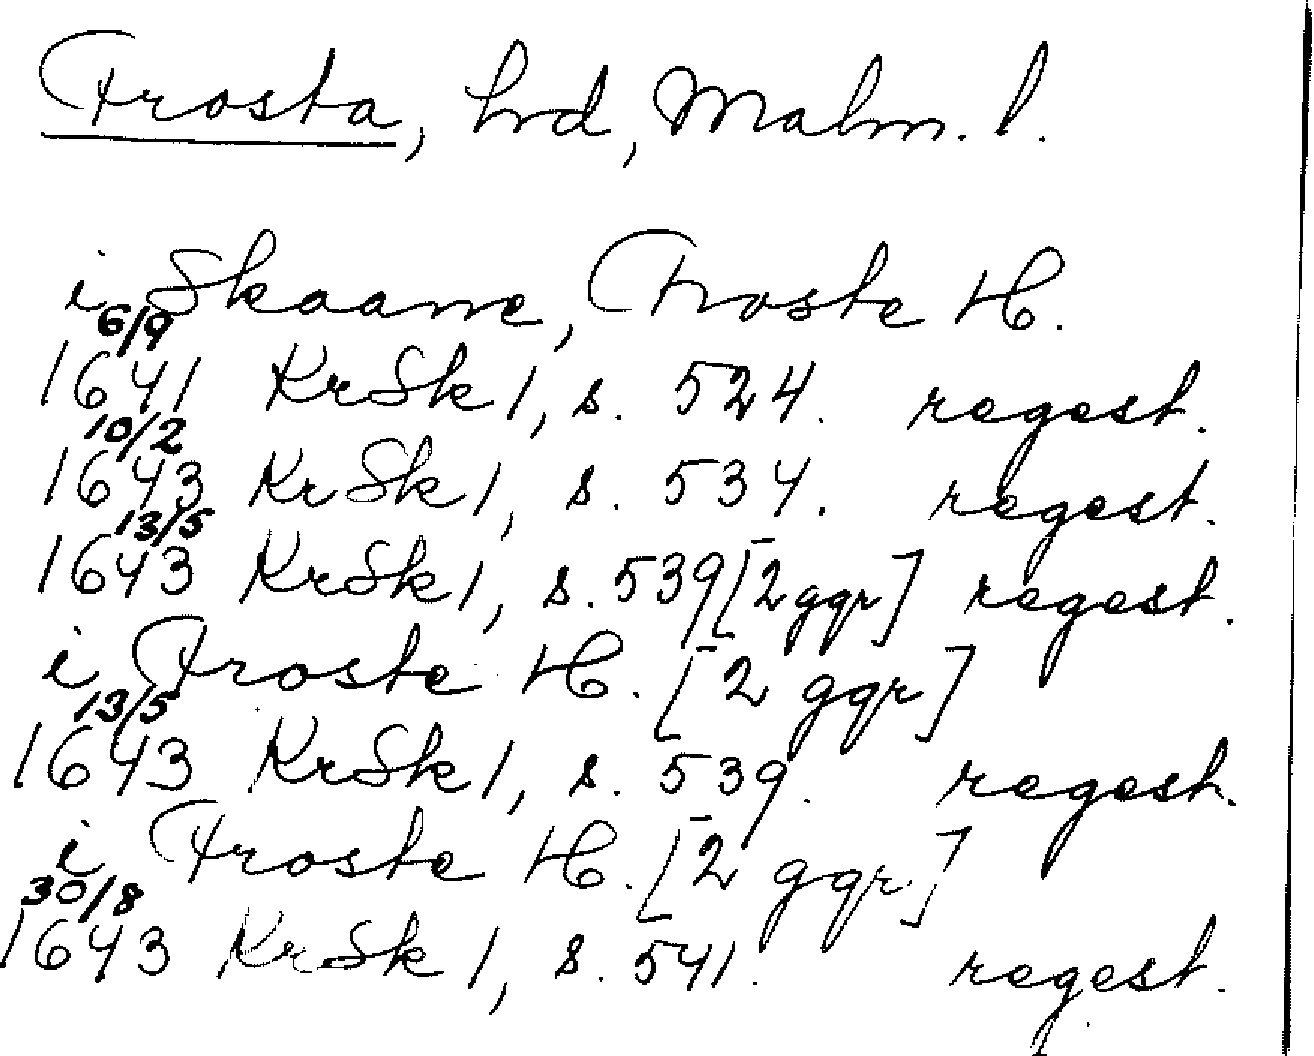 Frosta, hrd, Malm. l.
i Skaane, Froste H.
6/9
1641 KrSk 1, s. 524. regest.
10/2
1643 KrSk 1, s. 534. regest.
13/5
1643 KrSk 1, s. 539 [2 ggr] regest.
i Froste H. [2 ggr]
13/5
1643 KrSk 1, s. 539. regest.
i Froste H. [2 ggr]
30/8
1643 KrSk 1, s. 541. regest.